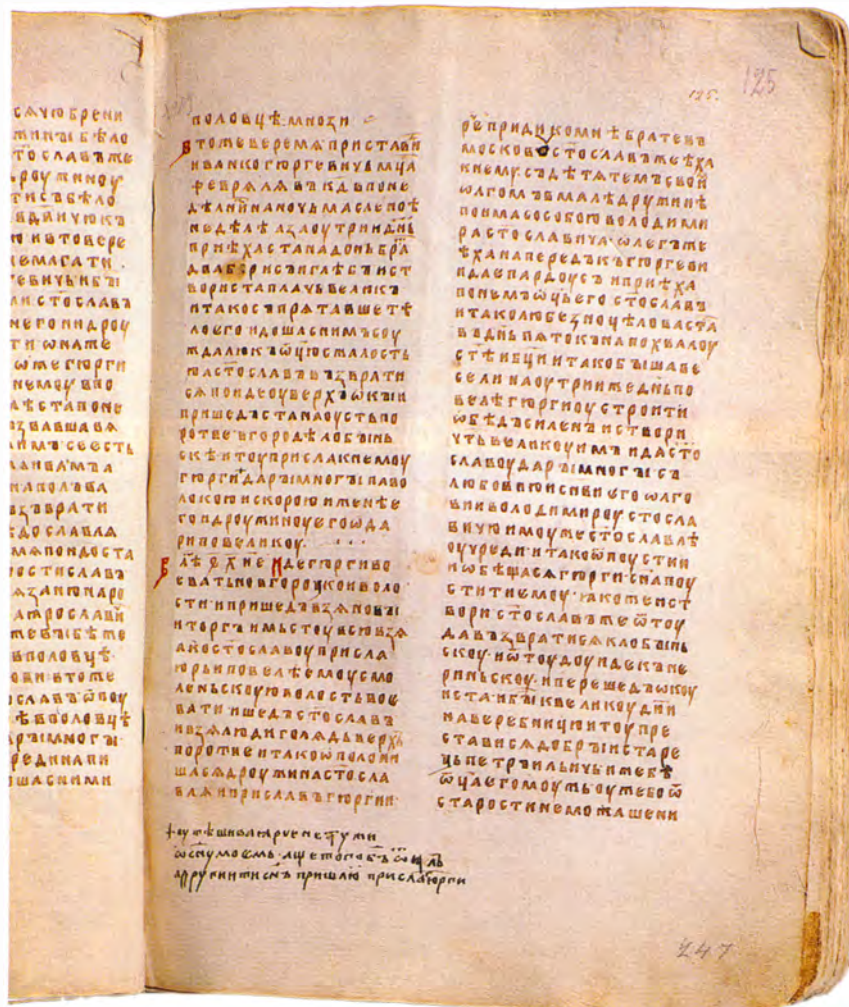 сѧчюбрени
жинꙑбѣло
тославъже
дроужиноу
тисѧбѣло
июкъ
ютовере
немагати
гевичьибꙑ
листославъ
негоидроу
тиѡнаже
ѡжегюрги
немоувпо
дѣстапоне
озвавшавѧ
имъсеесть
наполъва
възврати
ѣдославлѧ
мѧпоидоста
ростиславъ
ѧзаниюкꙗро
аꙗрославꙑ
жебꙑбѣжо
вполовцѣ
овивтоже
ославъѿпоу
ѣвполовцѣ
арꙑмногꙑ
рединапи
шасними
половцѣ·мнози
втожеверемѧпристави
иванкогюргевичьмц҃а
феврѧлѧвък҃дьпоне
дѣлнйинаночьмасленоѣ
недѣлѣазаоутриидн҃ь
приѣхастанадоньбра҃
двабориcъиглѣбъист
вористаплачьвеликъ
итакосъпрѧтавшетѣ
лоегоидошаснимъсоу
ждалюкъѡц҃юсжалость
юастославъвъзврати
сѧпоидеоуверхъѡкꙑи
пришедъстанаоустьпо
ротвевгородѣлобꙑнь
скѣитоуприслакнемоу
гюргидарꙑмногꙑпаво
локоюискороюиженѣе
гоидроужиноуегоѡда
риповеликоу·
Влѣ҃ ҂ѕ х҃ н҃е Идегюргиво
еватьновгороцкоиволо
стиипришедъвзѧновꙑ
иторгъимьстоувсювзѧ
акостославоуприсла
юрьиповелѣемоусмо
леньскоуюволостьвое
вати·ишедъстославъ
ивзѧлюдиголѧдьверхъ
поротвеитакоѡполони
шасѧдроужинастосла
влѧиприславъгюргии
реч҃придикомнѣбратевъ
московъстославъжеѣха
кнемусъдѣтѧтемъсвои
ѡлгомъвмалѣдружинѣ
поимасособоюволодими
растославичаѡлегъже
ѣханапередъкъгюргеви
идаепардоусъиприѣха
понемъѡц҃ьегостославъ
итаколюбезноцѣловаста
въдн҃ьпѧтокънапохвалоу
ст҃ѣибц҃иитакобꙑшаве
селинаоутриижеднь҃по
велѣгюргиоустроити
ѡбѣдъсиленъиствори
чтьвеликоуимъидастс
славоударꙑмногꙑсъ
любовиюисн҃виегоѡлго
виивolодимироустосла
вичюимоужестославлѣ
оучредиитакоѿпоустии
иѡбѣщасѧгюргиисн҃апоу
ститиемоу·ꙗкожеист
вористославъжеѿтоу
давъзвратисѧклобꙑнь
скоу·иѿтоудоуидекъне
риньскоу·иперешедъѡкоу
иста·ибꙑк҃великоудн҃и
наверебницииитоупре
ставсѧдобрꙑистаре
цьпетръильичьижебѣ
ѡц҃аегомоужьоужебоѿ
старостинеможашени
125
247